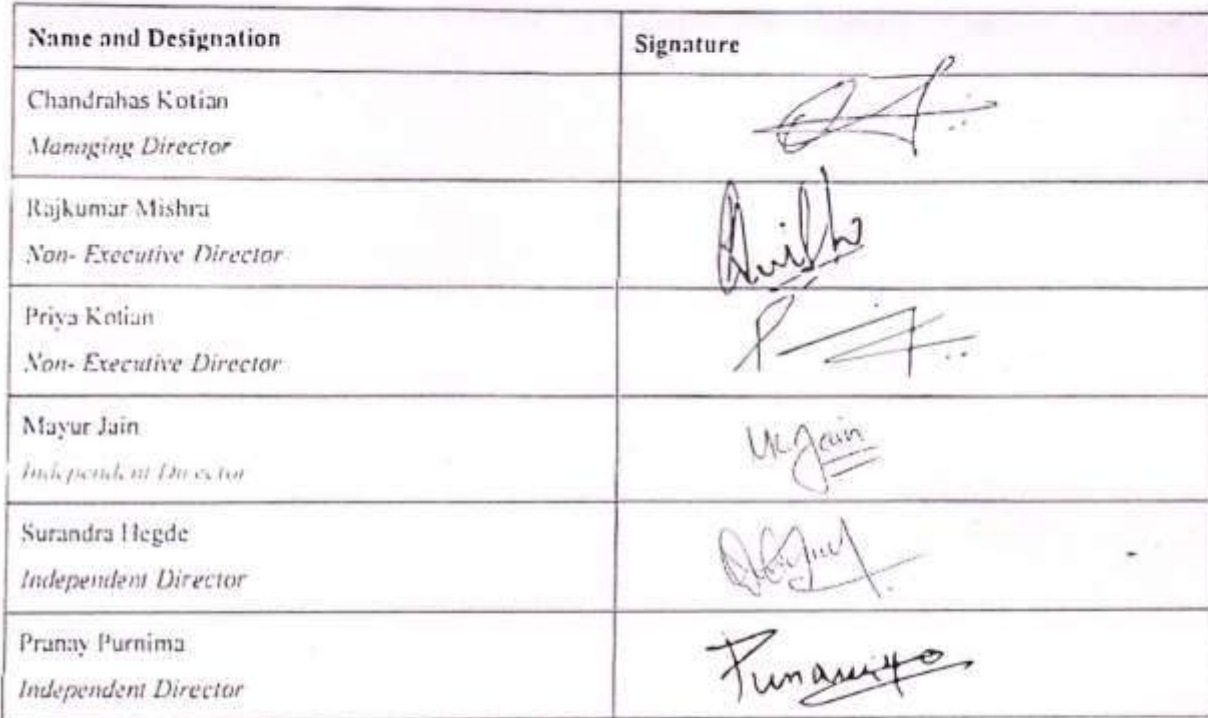 Name and Designation
Signature
Chandrahas Kotian
Managing Director
Rajkumar Mishra
Non- Executive Director
Priya Kotian
Non- Executive Director
Mayur Jain
Independent Director
Jain
Surandra Hegde
Independent Director
Pranay Purnima
Independent Director